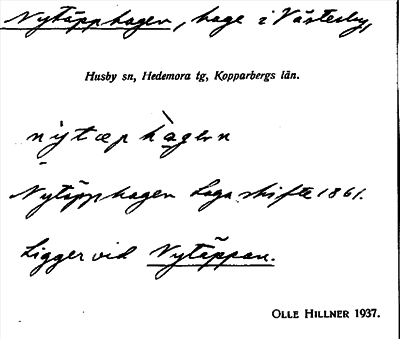 Nytäpphagen, hage i Västerby,
Husby sn, Hedemora tg, Kopparbergs län.
nytæp hagern
Nytäpphagen Laga skifte 1861.
Ligger vid Nytäppan.
OLLE HILLNER 1937.